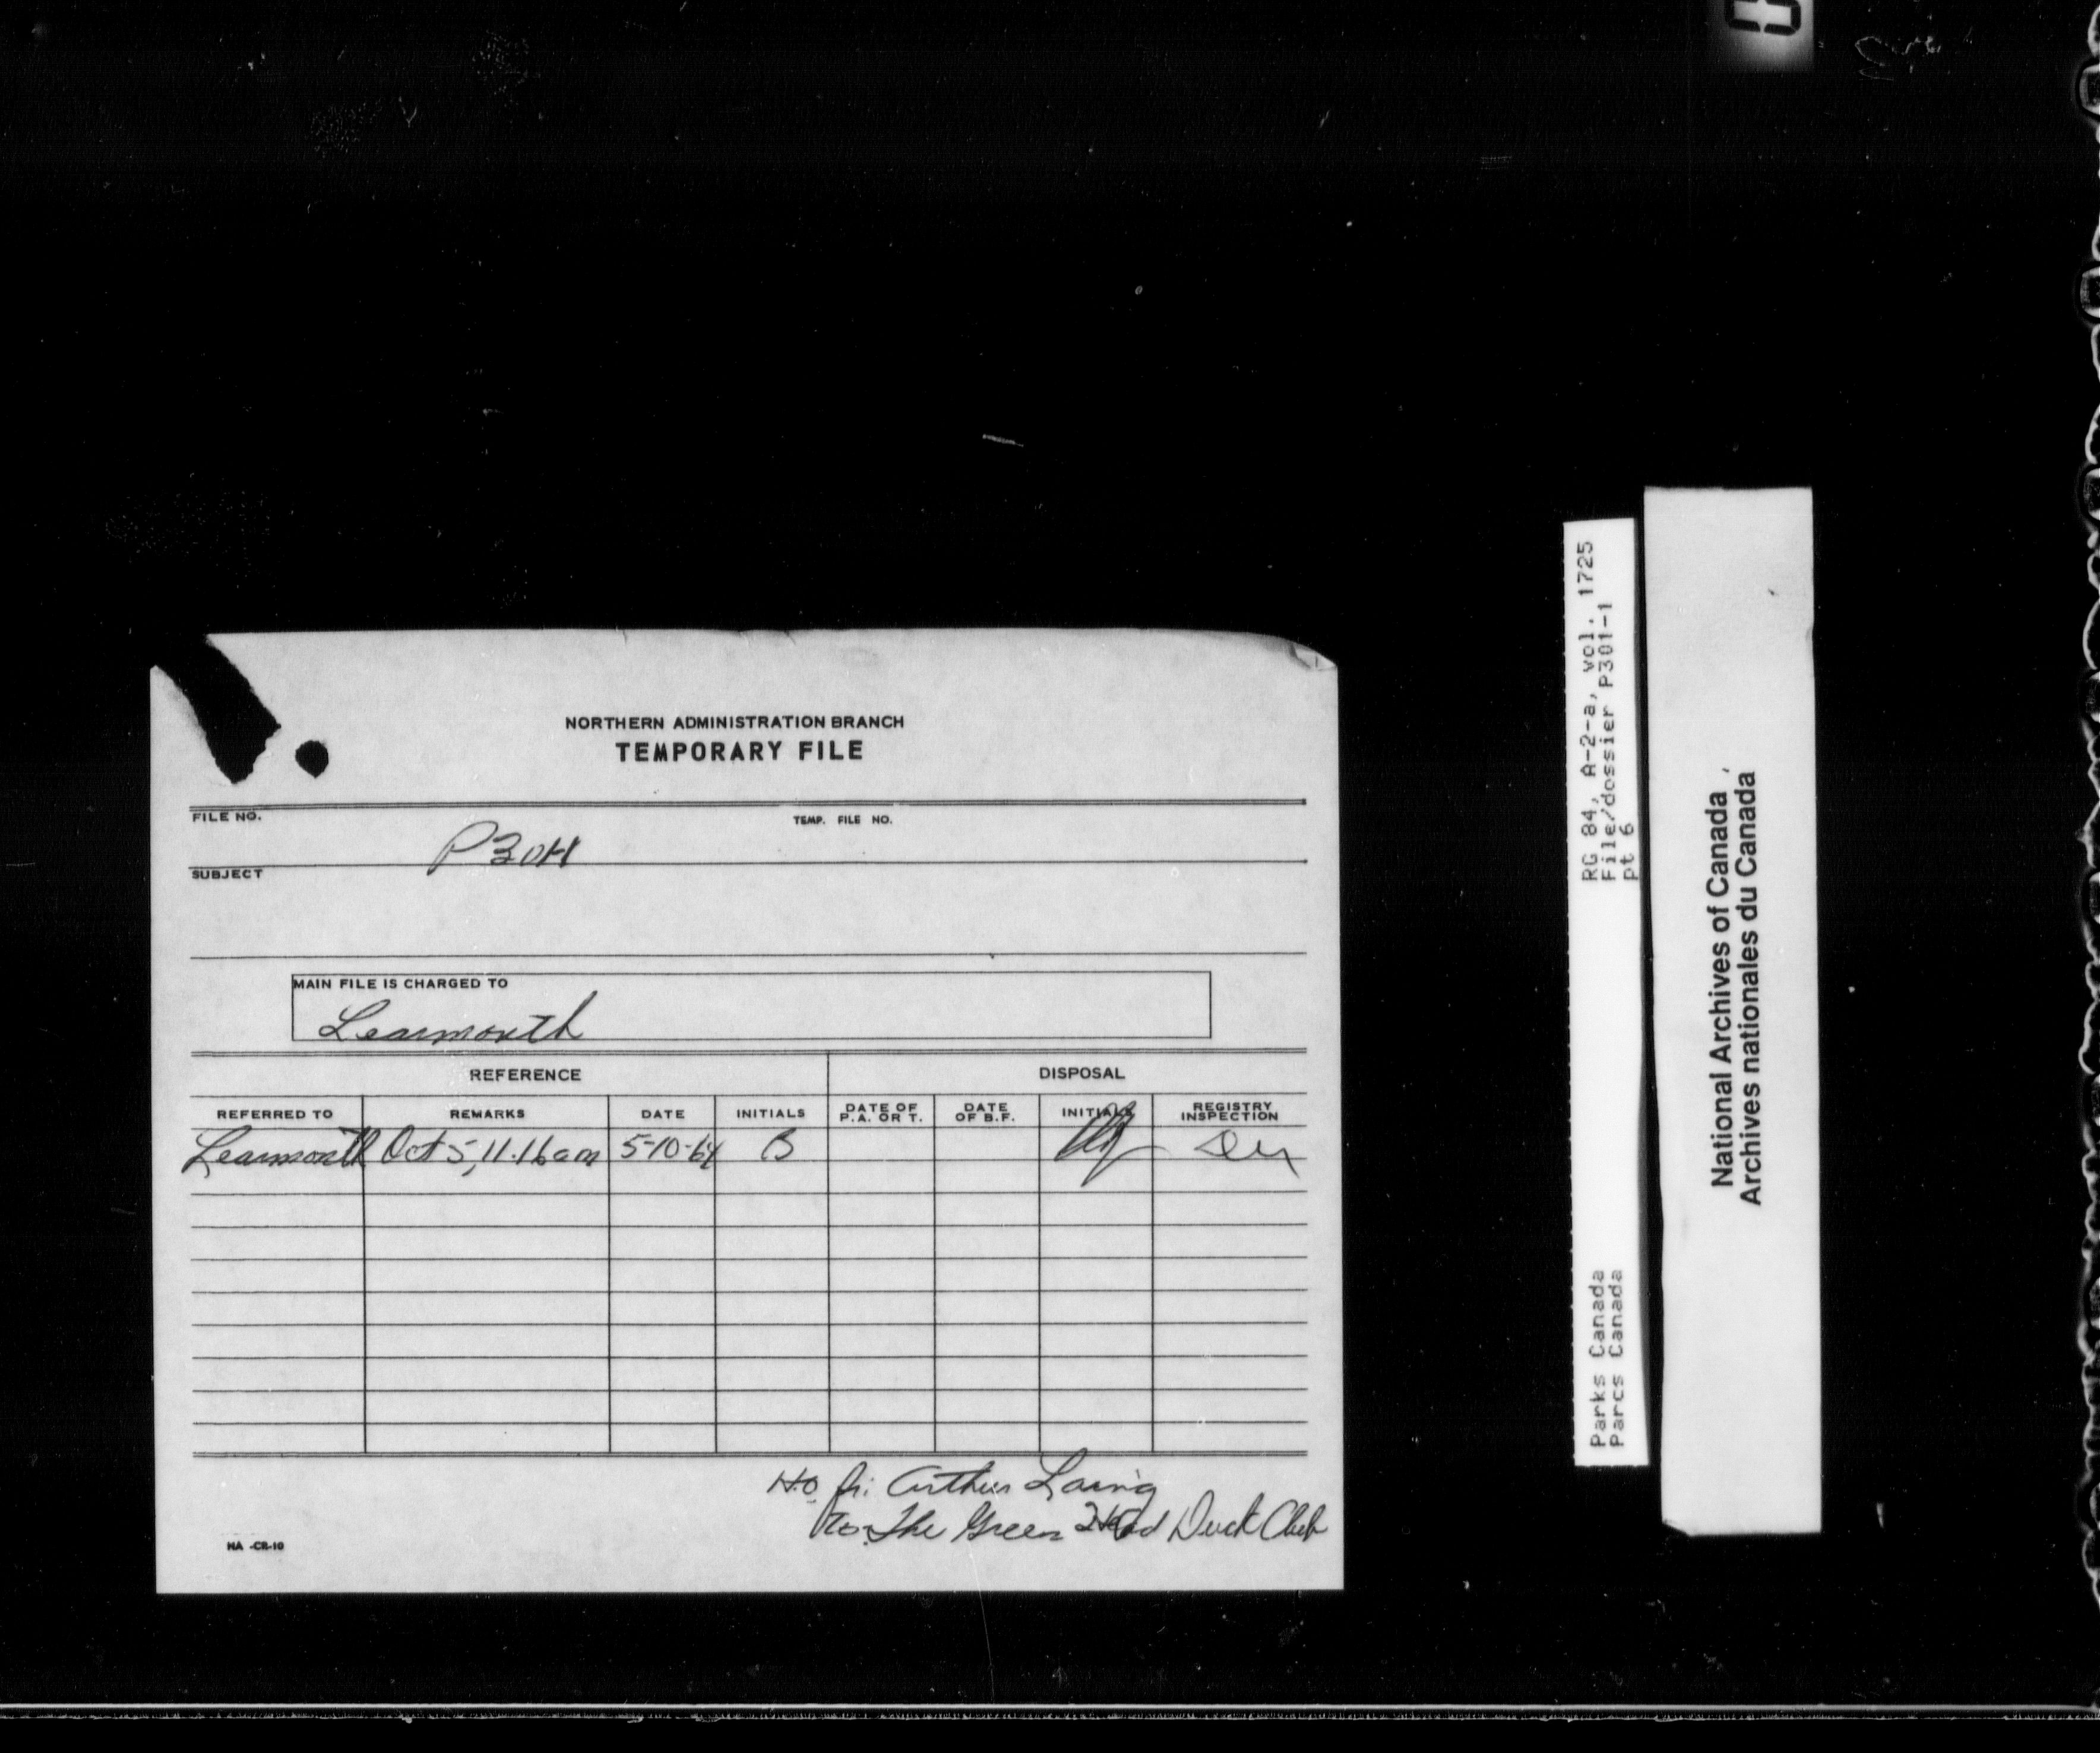 NORTHERN ADMINISTRATION BRANCH
TEMPORARY FILE
FILE NO. P301-1 TEMP. FILE NO.
SUBJECT
MAIN FILE IS CHARGED TO
Learmonth
REFERENCE DISPOSAL
REFERRED TO REMARKS DATE INITIALS DATE OF P.A. OR T. DATE OF B.F. INITIALS REGISTRY INSPECTION
Learmonth Oct 5, 11.16 am 5-10-64 B
H.O. fr: Arthur Laing
to: The Green Head Duck Club
NA -CR-10
RG 84, A-2-a, vol. 1725
File/dossier P301-1
pt 6
Parks Canada
Parcs Canada
National Archives of Canada
Archives nationales du Canada